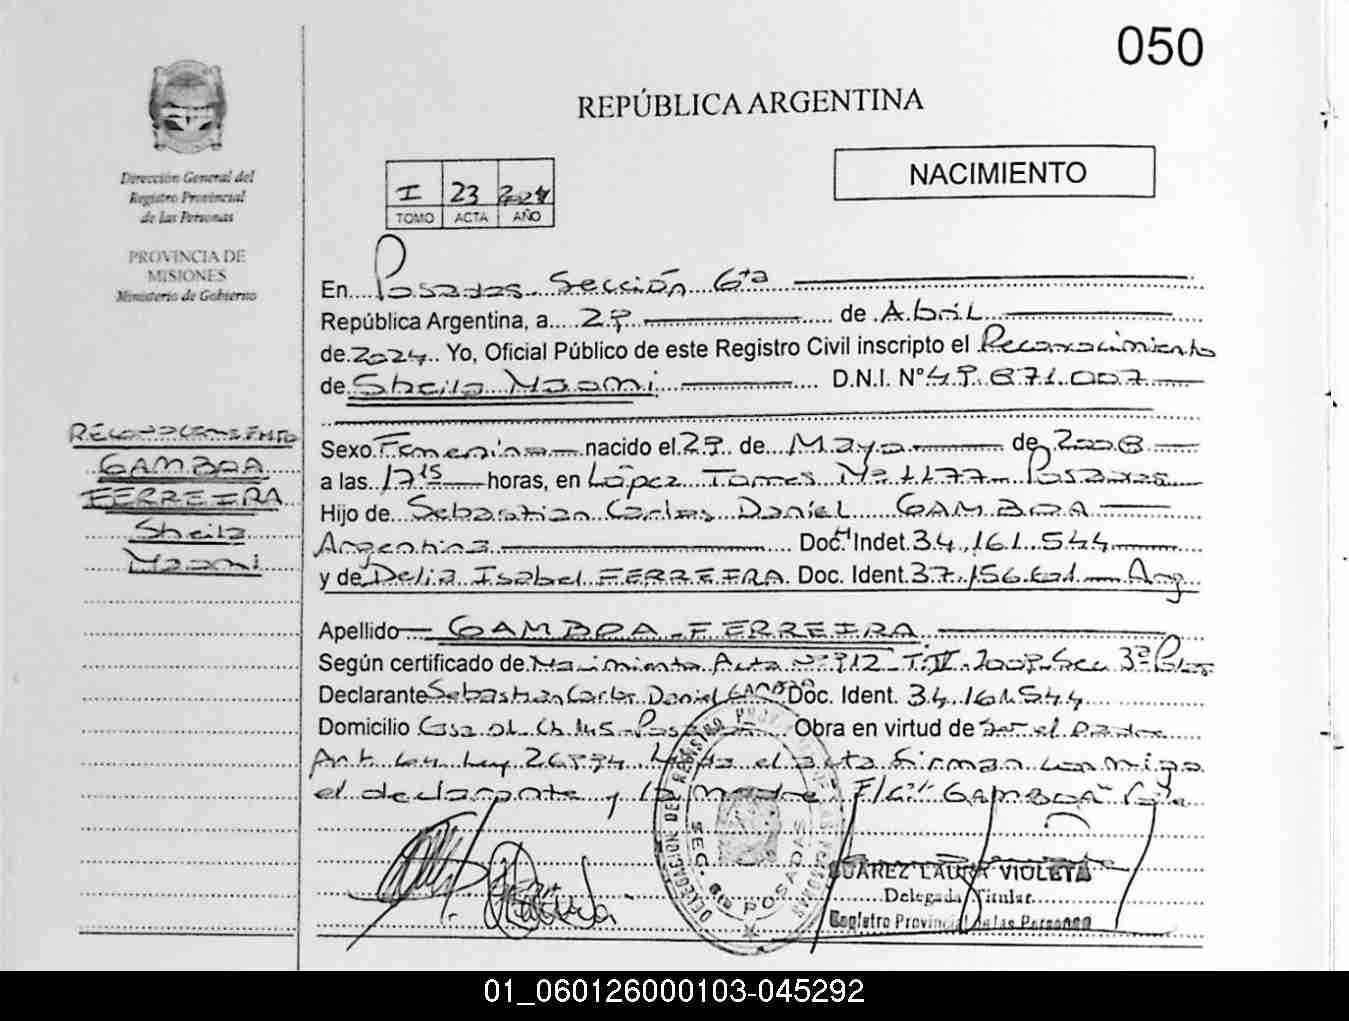 050
REPÚBLICA ARGENTINA
Dirección General del
Registro Provincial
de las Personas
PROVINCIA DE
MISIONES
Ministerio de Gobierno
I 23 2024
TOMO ACTA AÑO
NACIMIENTO
En Posadas Sección 6ta
República Argentina, a 29 de Abril
de 2024 Yo, Oficial Público de este Registro Civil inscripto el Reconocimiento
de Sheila Naomi D.N.I. Nº 49.871.007
RECONOCIMIENTO
GAMBOA
FERREIRA
Sheila
Naomi
Sexo Femenino nacido el 29 de Mayo de 2008
a las 17 15 horas, en López Torres Nº 1177 Posadas
Hijo de Sebastian Carlos Daniel GAMBOA
Argentina Doc. Indet. 34.161.544
y de Delia Isabel FERREIRA Doc. Ident. 37.156. Arg
Apellido GAMBOA FERREIRA
Según certificado de Nacimiento Acta Nº 912 T. IV 2009 Sec 3ª
Declarante Sebastian Carlos Daniel GAMBOA Doc. Ident. 34.161.544
Domicilio Casa Ch. Posadas Obra en virtud de ser el Padre
Art. 64 Ley 26994 el acta firman conmigo
el declarante y la madre GAMBOA
DELEGACION DEL REGISTRO PROVINCIAL DE LAS PERSONAS
SEC. 6ta POSADAS
SUAREZ LAURA VIOLETA
Delegada Titular
Registro Provincial de las Personas
01_060126000103-045292